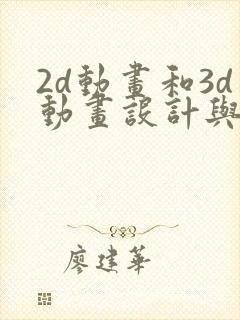 2d動畫和3d
動畫設計與
廖建華